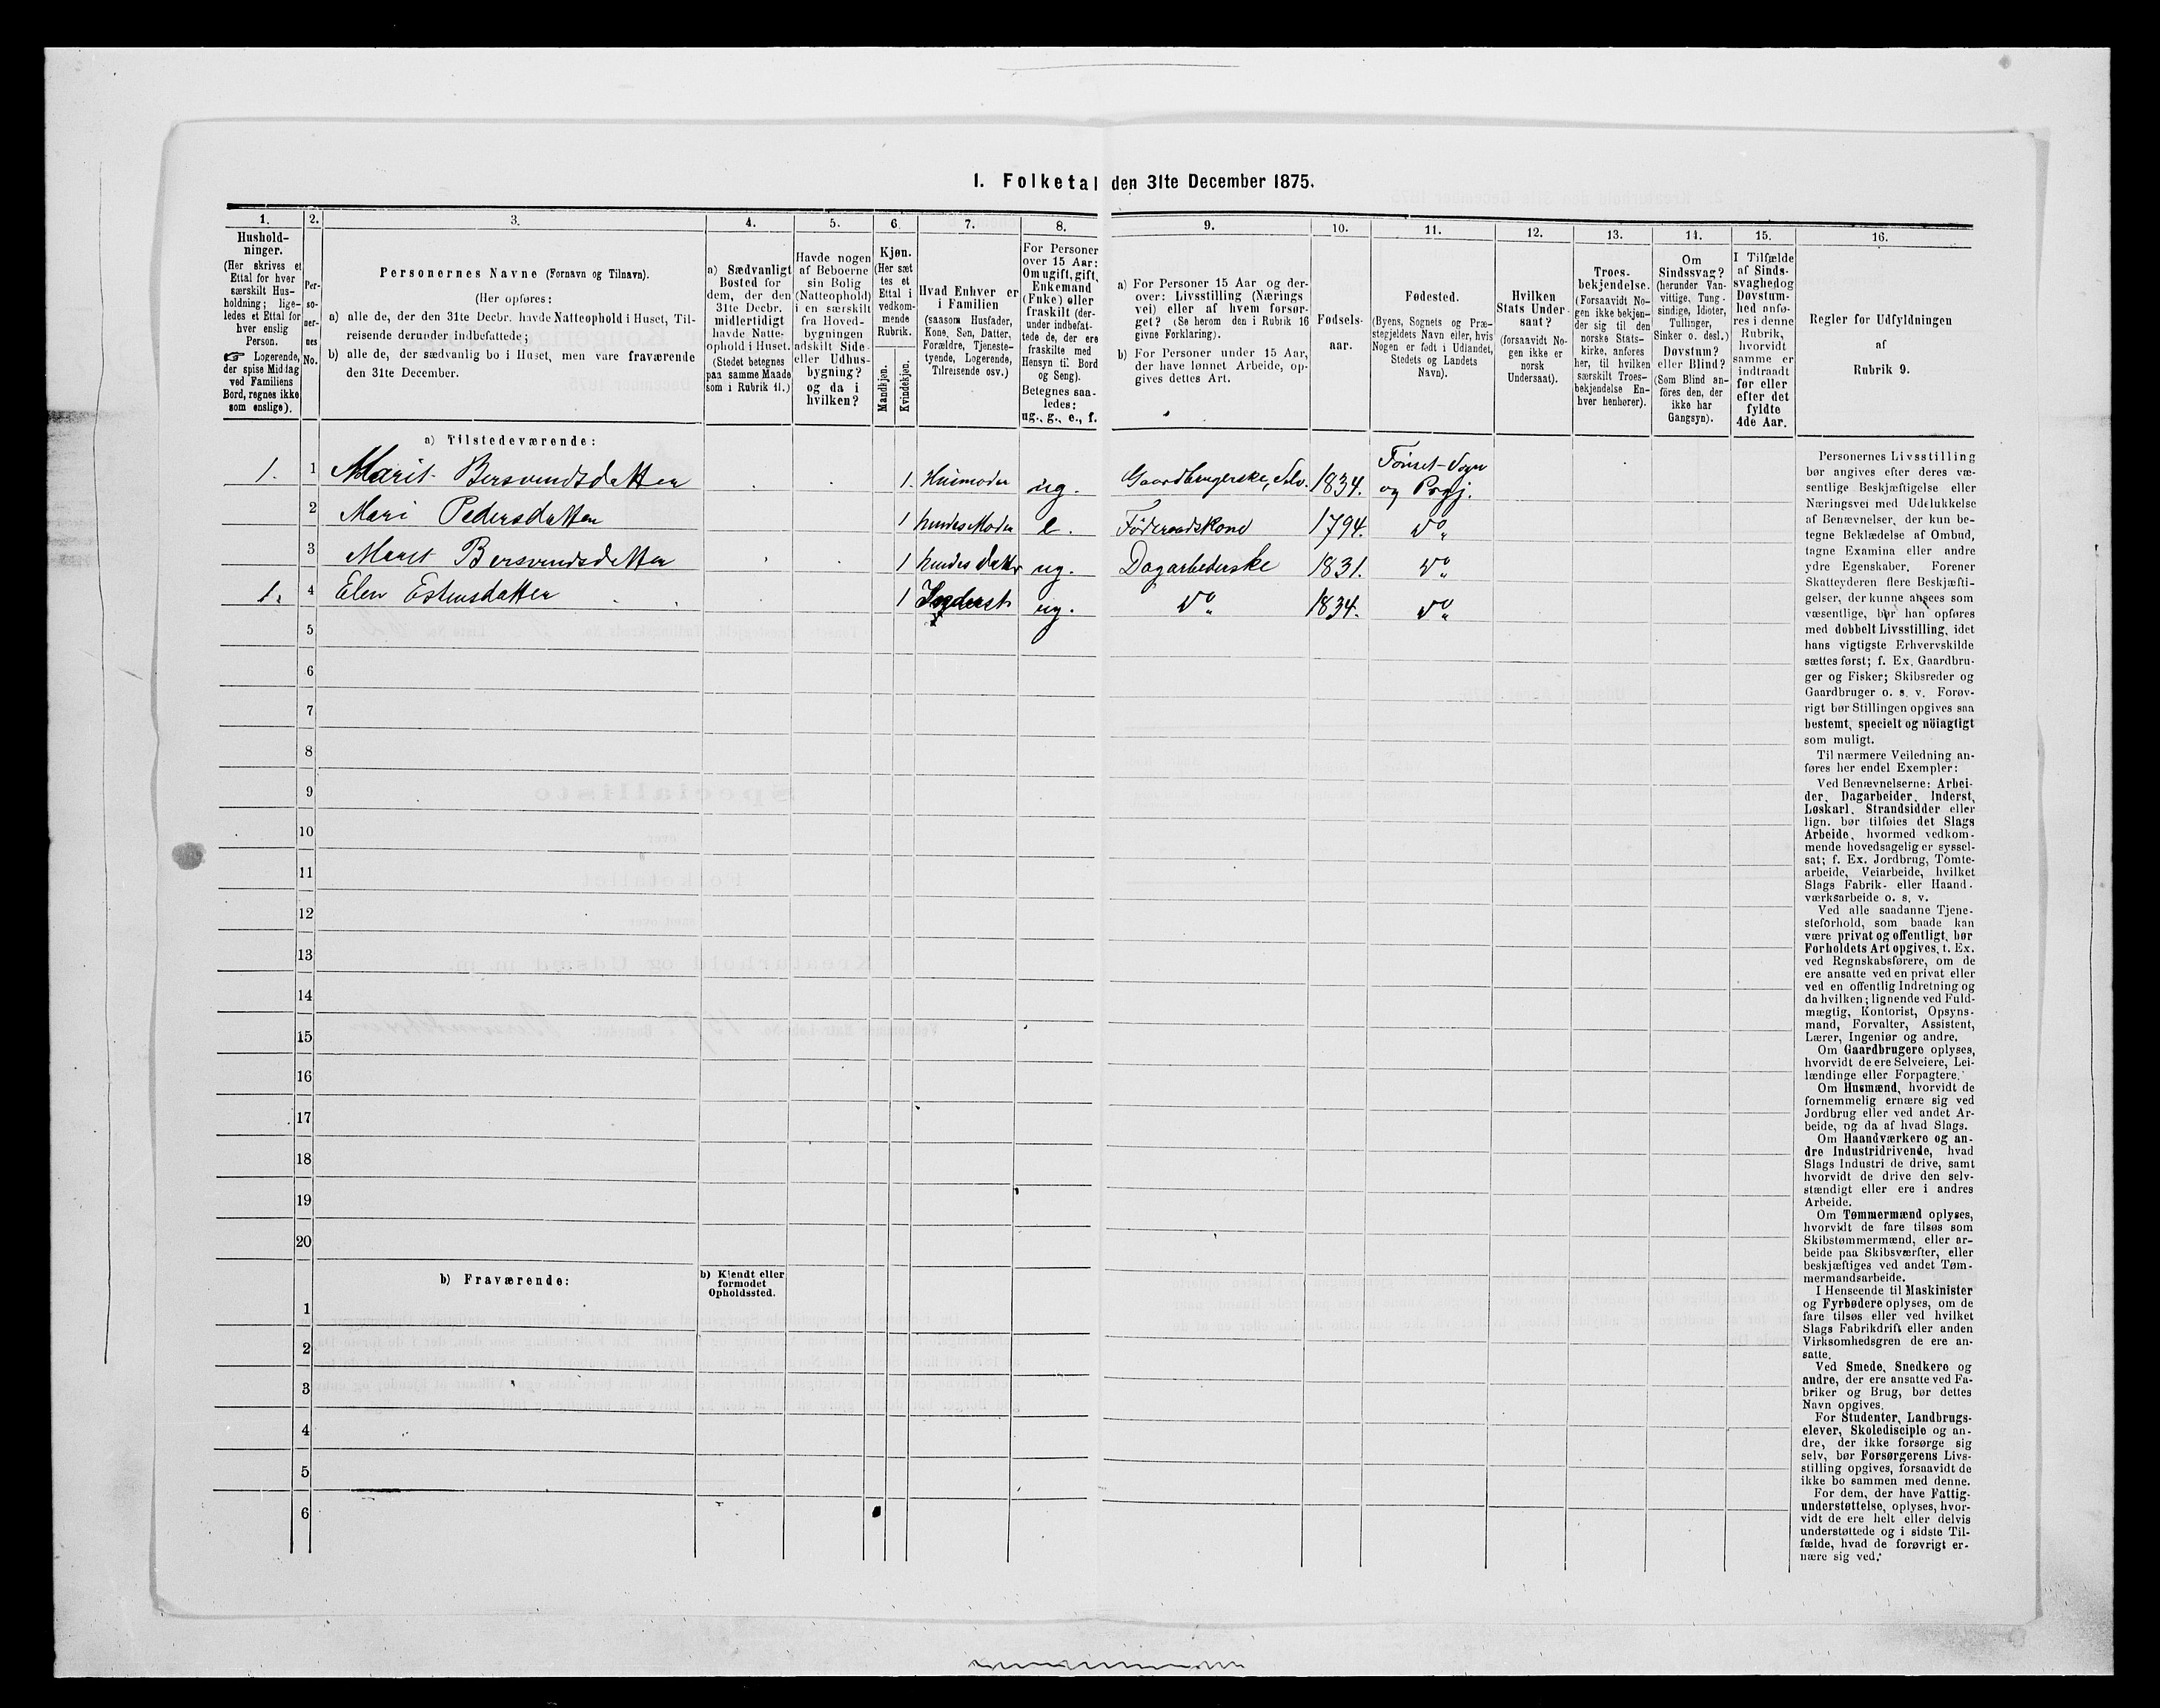 I. Folketal den 31te December 1875.
1.
Hushold-
ninger.
(Her skrives et
Ettal for hver
særskilt Hus-
holdning; lige-
ledes et Ettal for
hver enslig
Person.
☞ Logerende,
der spise Middag
ved Familiens
Bord, regnes ikke
som enslige).
2.
Per-
so-
ner-
nes
No.
3.
Personernes Navne (Fornavn og Tilnavn).
(Her opføres:
a) alle de, der den 31te Decbr. havde Natteophold i Huset, Til-
reisende derunder indbefattede;
b) alle de, der sædvanlig bo i Huset, men vare fraværende
den 31te December.
4.
a) Sædvanligt
Bosted for
dem, der den
31te Decbr.
midlertidigt
havde Natte-
ophold i Huset.
(Stedet betegnes
paa samme Maade
som i Rubrik 11.)
5.
Havde nogen
af Beboerne
sin Bolig
(Natteophold)
i en særskilt
fra Hoved-
bygningen
adskilt Side-
eller Udhus-
bygning?
og da i
hvilken?
6.
Kjøn.
(Her sæt
tes et
Ettal i
vedkom-
mende
Rubrik.
Mandkjøn.
Kvindekjøn.
7.
Hvad Enhver er
i Familien
(saasom Husfader,
Kone, Søn, Datter,
Forældre, Tjeneste-
tyende, Logerende,
Tilreisende osv.)
8.
For Personer
over 15 Aar:
Om ugift, gift,
Enkemand
(Enke) eller
fraskilt (der-
under indbefat-
tede de, der ere
fraskilte med
Hensyn til Bord
og Seng).
Betegnes saa-
ledes:
ug., g., e., f.
9.
a) For Personer 15 Aar og der-
over: Livsstilling (Nærings
vei) eller af hvem forsør-
get? (Se herom den i Rubrik 16
givne Forklaring).
b) For Personer under 15 Aar,
der have lønnet Arbeide, op-
gives dettes Art.
10.
Fødsels-
aar.
11.
Fødested.
(Byens, Sognets og Præ-
stegjeldets Navn eller, hvis
Nogen er født i Udlandet,
Stedets og Landets
Navn).
12.
Hvilken
Stats Under-
saat?
(forsaavidt No-
gen ikke er
norsk
Undersaat).
13.
Troes-
bekjendelse.
(Forsaavidt No-
gen ikke bekjen-
der sig til den
norske Stats-
kirke, anføres
her, til hvilken
særskilt Troes-
bekjendelse En-
hver henhører).
14.
Om
Sindssvag?
(herunder Van-
vittige, Tung-
sindige, Idioter,
Tullinger,
Sinker o. desl.)
Døvstum?
eller Blind?
(Som Blind an-
føres den, der
ikke har
Gangsyn).
15.
I Tilfælde
af Sinds-
svaghed og
Døvstum-
hed anfø-
res i denne
Rubrik,
hvorvidt
samme er
indtraadt
før eller
efter det
fyldte
4de Aar.
16.
Regler for Udfyldningen
af
Rubrik 9.
a) Tilstedeværende:
1. 1 Marit Bersvendsdatter 1. Husmoder ug. Gaardbrugerske, Selv. 1834. Tønset-Sogn og Prgj.
2 Mari Pedersdatter 1 hendes Moder e. Føderaadskone 1794. Do
3 Maret Bersvendsdatter 1 hendes datter ug. Dagarbederske 1831. Do
1. 4 Elen Estensdatter 1 Inderst ug. Do 1834. Do
5
6
7
8
9
10
11
12
13
14
15
16
17
18
19
20
b) Fraværende:
b) Kjendt eller
formodet
Opholdssted.
1
2
3
4
5
6
Personernes Livsstilling
bør angives efter deres væ-
sentlige Beskjæftigelse eller
Næringsvei med Udelukkelse
af Benævnelser, der kun be-
tegne Beklædelse af Ombud,
tagne Examina eller andre
ydre Egenskaber. Forener
Skatteyderen flere Beskjæfti-
gelser, der kunne ansees som
væsentlige, bør han opføres
med dobbelt Livsstilling, idet
hans vigtigste Erhvervskilde
sættes først; f. Ex. Gaardbru-
ger og Fisker; Skibsreder og
Gaardbruger o. s. v. Forøv-
rigt bør Stillingen opgives saa
bestemt, specielt og nöiagtigt
som muligt.
Til nærmere Veiledning an-
føres her endel Exempler:
Ved Benævnelserne: Arbei-
der, Dagarbeider, Inderst,
Løskarl, Strandsidder eller
lign. bør tilføies det Slags
Arbeide, hvormed vedkom-
mende hovedsagelig er syssel-
sat; f. Ex. Jordbrug, Tomte-
arbeide, Veiarbeide, hvilket
Slags Fabrik- eller Haand-
værksarbeide o. s. v.
Ved alle saadanne Tjene-
steforhold, som baade kan
være privat og offentligt, bør
Forholdets Art opgives, t. Ex.
ved Regnskabsførere, om de
ere ansatte ved en privat eller
ved en offentlig Indretning og
da hvilken; lignende ved Fuld-
mægtig, Kontorist, Opsyns-
mand, Forvalter, Assistent,
Lærer, Ingeniør og andre.
Om Gaardbrugere oplyses,
hvorvidt de ere Selveiere, Lei-
lændinge eller Forpagtere.
Om Husmænd, hvorvidt de
fornemmelig ernære sig ved
Jordbrug eller ved andet Ar-
beide, og da af hvad Slags.
Om Haandværkere og an-
dre Industridrivende, hvad
Slags Industri de drive, samt
hvorvidt de drive den selv-
stændigt eller ere i andres
Arbeide.
Om Tømmermænd oplyses,
hvorvidt de fare tilsøs som
Skibstømmermænd, eller ar-
beide paa Skibsværfter, eller
beskjæftiges ved andet Tøm-
mermandsarbeide.
I Henseende til Maskinister
og Fyrbødere oplyses, om de
fare tilsøs eller ved hvilket
Slags Fabrikdrift eller anden
Virksomhedsgren de ere an-
satte.
Ved Smede, Snedkere og
andre, der ere ansatte ved Fa-
briker og Brug, bør dettes
Navn opgives.
For Studenter, Landbrugs-
elever, Skoledisciple og an-
dre, der ikke forsørge sig
selv, bør Forsørgerens Livs-
stilling opgives, forsaavidt de
ikke bo sammen med denne.
For dem, der have Fattig-
understøttelse, oplyses, hvor-
vidt de ere helt eller delvis
understøttede og i sidste Til-
fælde, hvad de forøvrigt er-
nære sig ved.